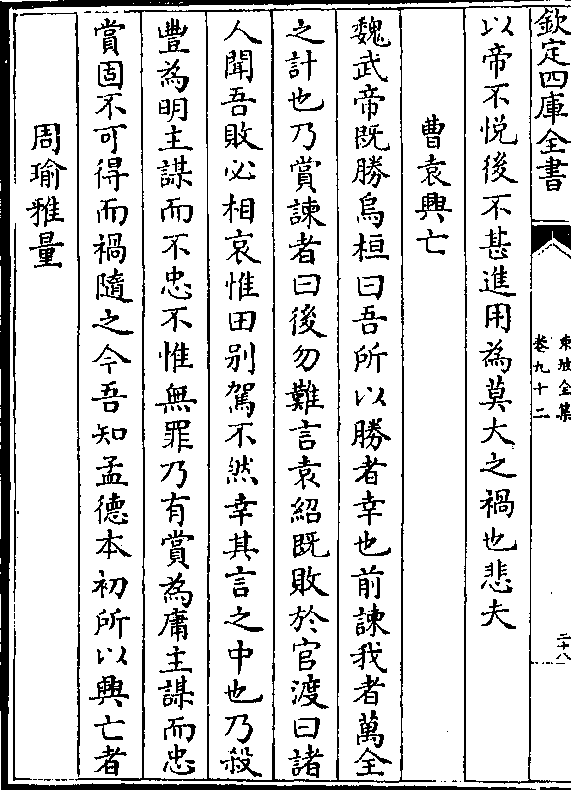 欽定四庫全書
東坡全集
卷九十二
二十八
以帝不悅後不甚進用為莫大之禍也悲夫
曹袁興亡
魏武帝既勝烏桓曰吾所以勝者幸也前諫我者萬全
之計也乃賞諫者曰後勿難言袁紹既敗於官渡曰諸
人聞吾敗必相哀惟田别駕不然幸其言之中也乃殺
豐為明主謀而不忠不惟無罪乃有賞為庸主謀而忠
賞固不可得而禍隨之今吾知孟德本初所以興亡者
周瑜雅量